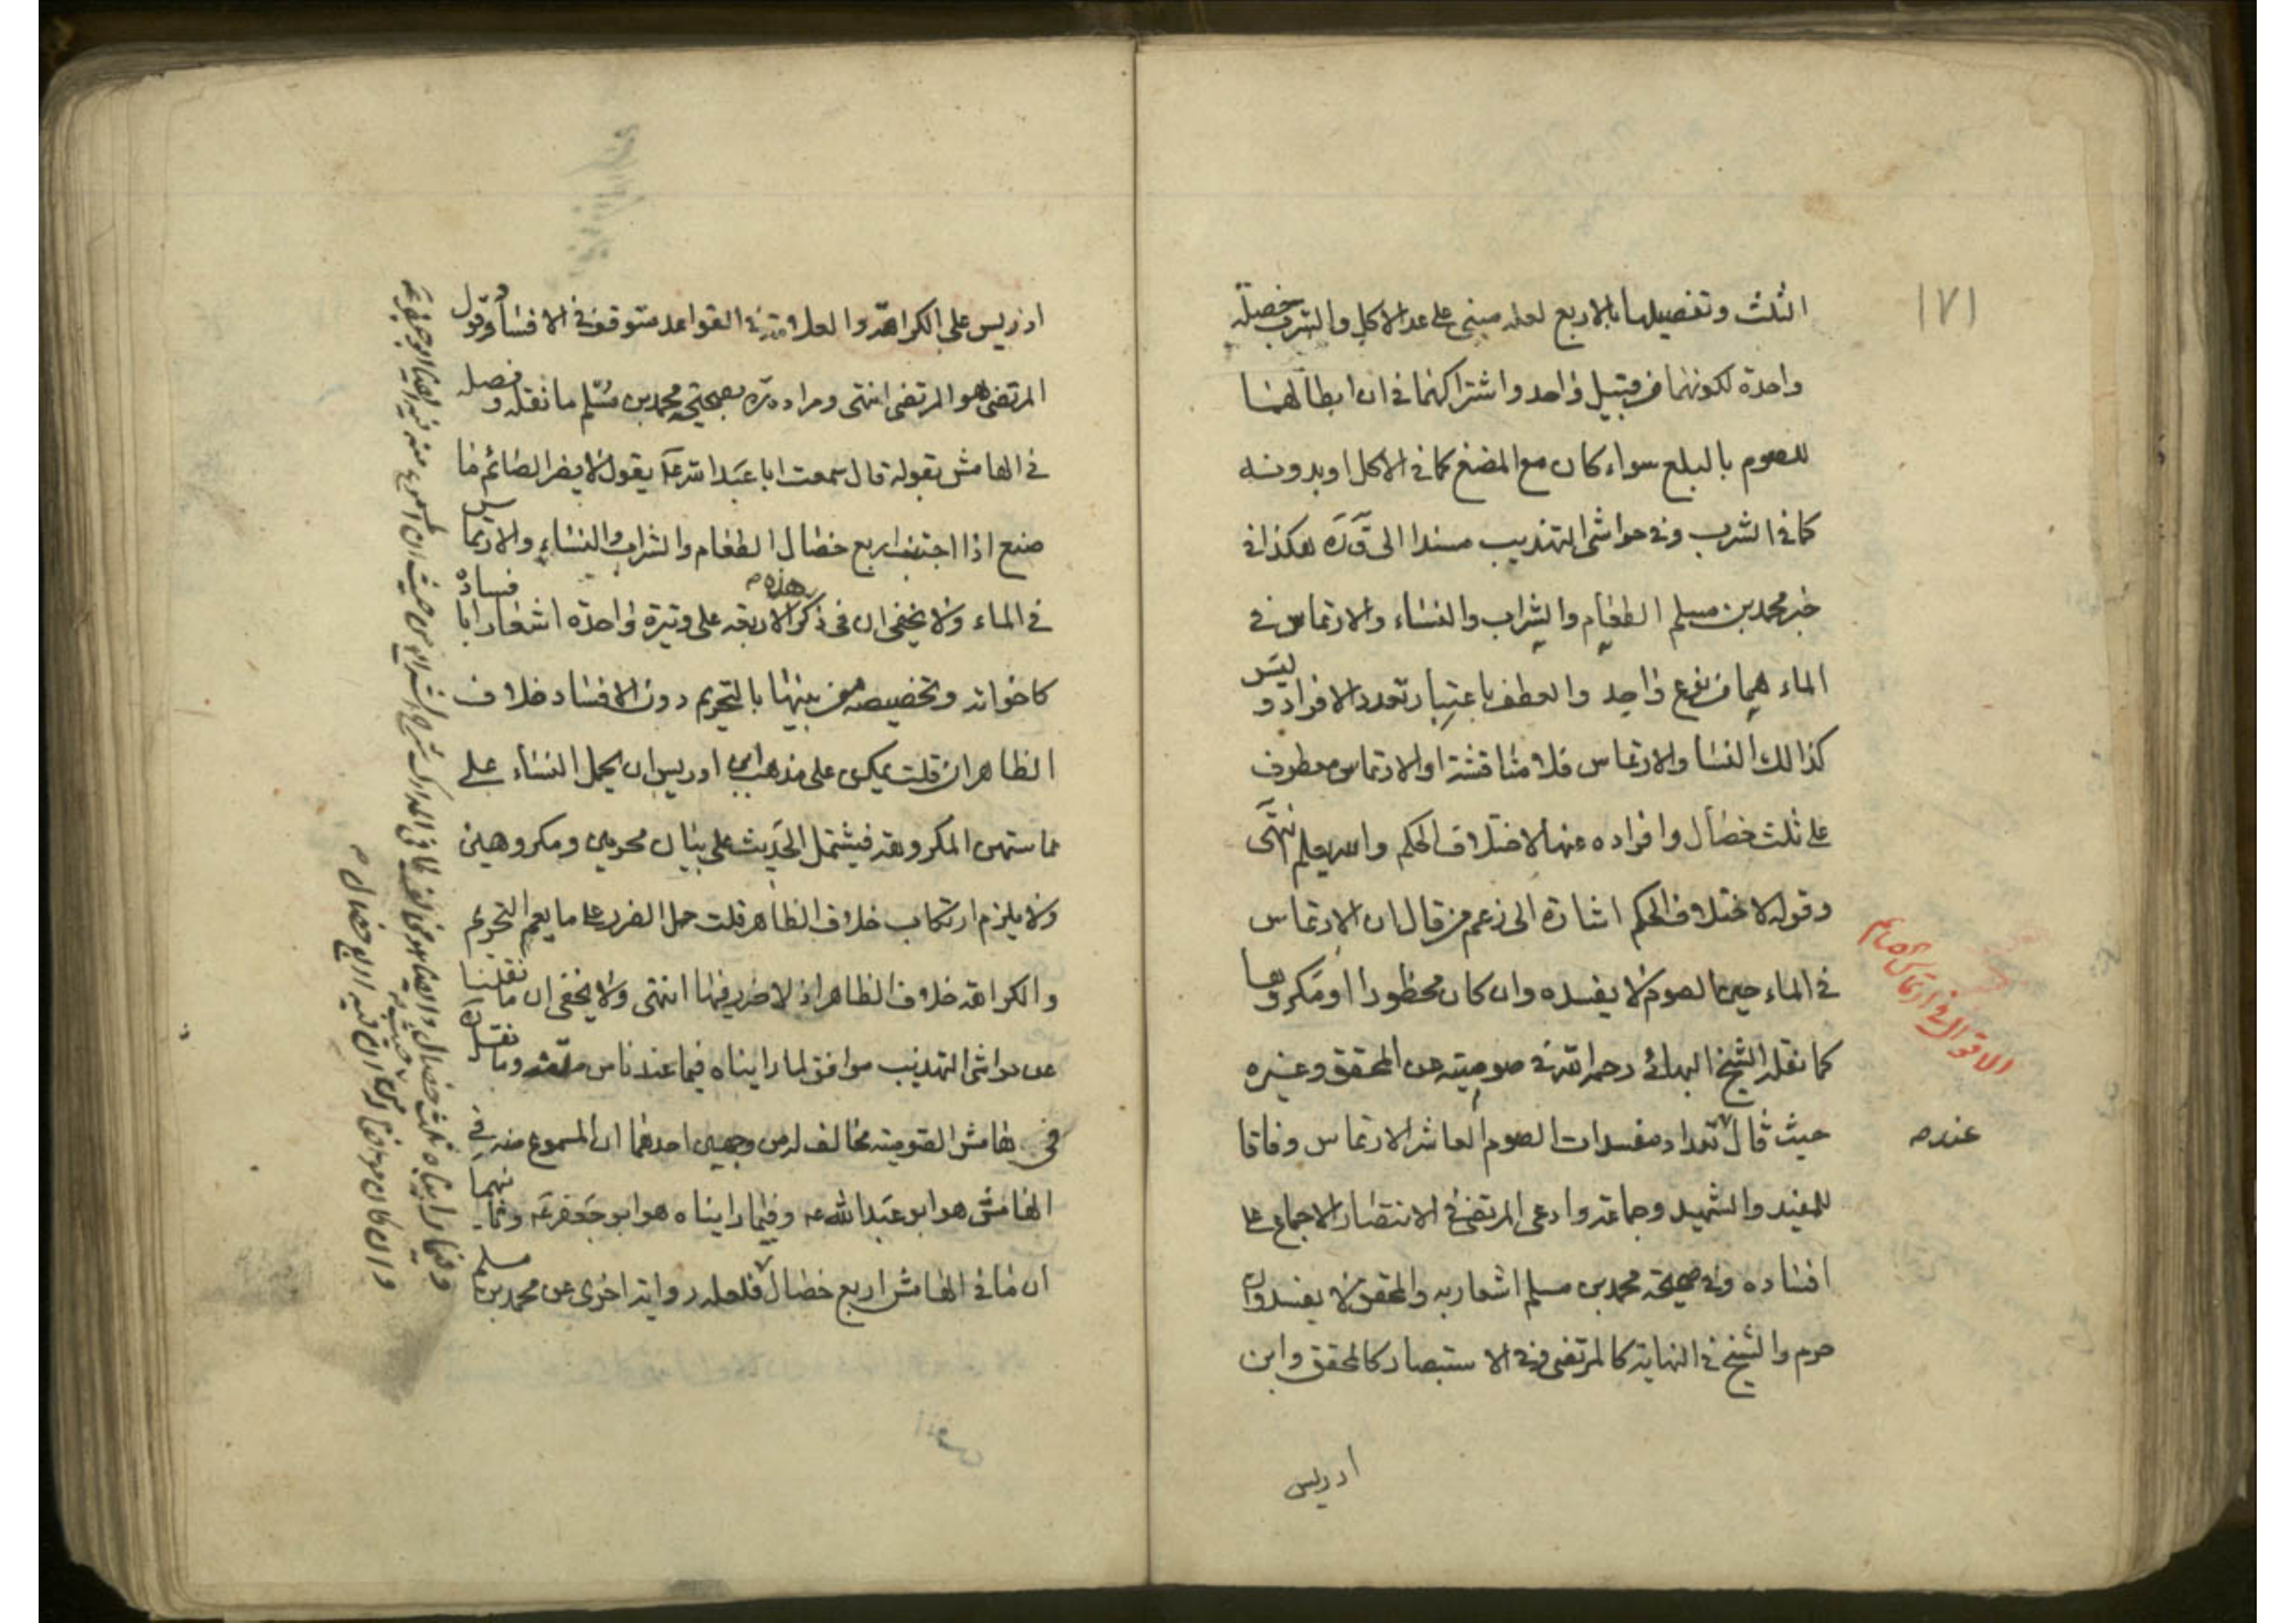 ١٧١
الثلث وتفصيلها بالاربع لعله مبني على عد الاكل والشرب خصلة
واحدة لكونهما من قبيل واحد واشتراكهما في ان ابطالهما
للصوم بالبلع سواء كان مع المضغ كما في الاكل او بدونه
كما في الشرب وفي حواشي التهذيب مسندا الى هكذا في
خبر محمد بن مسلم الطعام والشراب والنساء والارتماس في
الماء هما من نوع واحد والعطف باعتبار تعدد الافراد و ليس
كذالك النسا والارتماس فلا مناقشة او الارتماس معطوف
على ثلث خصال وافراده عنها لاختلاف الحكم والله يعلم انتهى
وقوله لاختلاف الحكم اشارة الى زعم من قال ان الارتماس
في الماء حين الصوم لا يفسده وان كان محظورا او مكروها
كما نقله الشيخ البهائي رحمه الله في صوميته عن المحقق وغيره
حيث قال عند تعداد مفسدات الصوم العاشر الارتماس وفاقا
للمفيد والشهيد وجماعة وادعى المرتضى في الانتصار الاجماع على
افساده وفي صحيحة محمد بن مسلم اشعار به والمحقق لا يفسد وان
حرم والشيخ في النهاية كالمرتضى وفي الاستبصار كالمحقق وابن
ادريس
الاقوال في ارتماس الصائم
ادريس على الكراهة والعلامة في القواعد متوقف في الافساد وقول
المرتضى هو المرتضى انتهى ومراده ره بصحيحة محمد بن مسلم ما نقله وفصله
في الهامش بقوله قال سمعت ابا عبد الله ع يقول لا يضر الصائم ما
صنع اذا اجتنب اربع خصال الطعام والشراب والنساء والارتماس
في الماء ولا يخفى ان في ذكر هذه الاربعة على وتيرة واحدة اشعارا بافساده
كاخواته وتخصيصه من بينها بالتحريم دون الافساد خلاف
الظاهر ان قلت يمكن على مذهب ابن ادريس ان يحمل النساء على
مماستهن المكروهة فيشتمل الحديث على بيان محرمين ومكروهين
ولا يلزم ارتكاب خلاف الظاهر قلت حمل الضرر على ما يعم التحريم
والكراهة خلاف الظاهر اذ لا ضرر فيها انتهى ولا يخفى ان ما نقلنا
عن حواشي التهذيب موافق لما رايناه فيما عندنا من وما نقلناه
في هامش الصومية مخالف له من وجهين احدهما ان المسموع منه في
الهامش هو ابو عبد الله ع وفيما رايناه هو ابو جعفر ع وثانيهما
ان ما في الهامش اربع خصال فلعله رواية اخرى عن محمد بن مسلم
وفيما رايناه ثلث خصال
وان كان اربع خصال